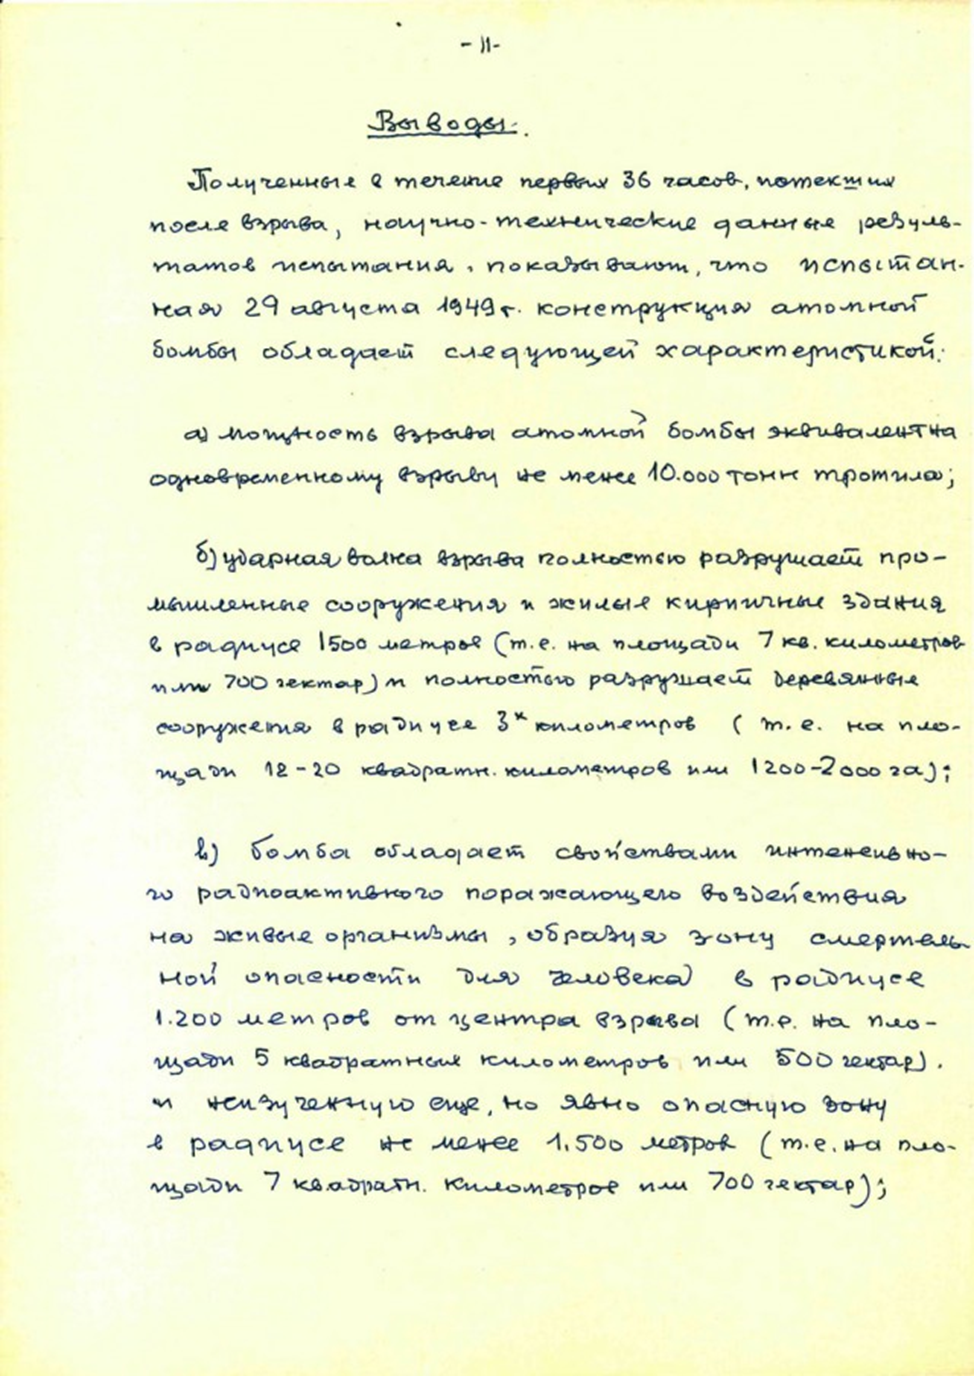 - 11 -
Выводы.
Полученные в течение первых 36 часов, потекших
после взрыва, научно-технические данные резуль-
татов испытания, показывают, что испытан-
ная 29 августа 1949 г. конструкция атомной
бомбы обладает следующей характеристикой:
а) мощность взрыва атомной бомбы эквивалентна
одновременному взрыву не менее 10.000 тонн тротила;
б) ударная волна взрыва полностью разрушает про-
мышленные сооружения и жилые кирпичные здания
в радиусе 1500 метров (т.е. на площади 7 кв. километров
или 700 гектар) и полностью разрушает деревянные
сооружения в радиусе 3х километров (т.е. на пло-
щади 12-20 квадратн. километров или 1200-2000 га);
в) бомба обладает свойствами интенсивно-
го радиоактивного поражающего воздействия
на живые организмы, образуя зону смертель
ной опасности для человека в радиусе
1.200 метров от центра взрыва (т.е. на пло-
щади 5 квадратные километров или 500 гектар).
и неизученную еще, но явно опасную зону
в радиусе не менее 1.500 метров (т.е. на пло-
щади 7 квадратн. километров или 700 гектар);